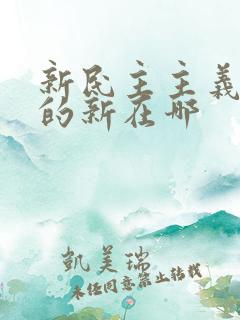 新民主主义
的新在哪
凱美瑞
未经同意禁止转载